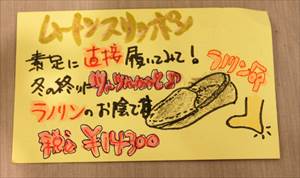 ムートンスリッポン
素足に直接履いてみて！
冬の終りにツルツルかかと♪
ラノリンのお陰で
税込￥14300
ラノリン